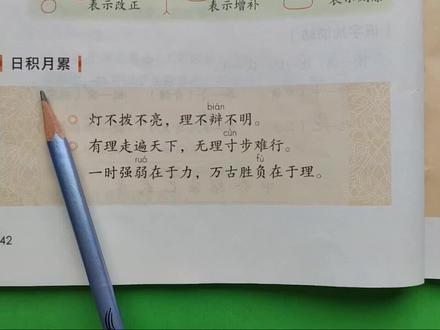 表示改正
表示增补
日积月累
biàn
灯不拨不亮，理不辩不明。
cùn
有理走遍天下，无理寸步难行。
ruò fù
一时强弱在于力，万古胜负在于理。
42